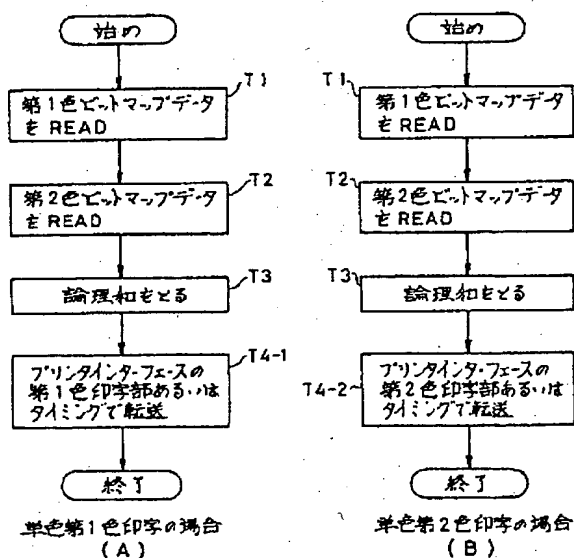 始め
T1
第1色ビットマップデータ
をREAD
T2
第2色ビットマップデータ
をREAD
T3
論理和をとる
T4-1
プリンタインターフェースの
第1色印字部あるいは
タイミングで転送
終了
単色第1色印字の場合
(A)
始め
T1
第1色ビットマップデータ
をREAD
T2
第2色ビットマップデータ
をREAD
T3
論理和をとる
T4-2
プリンタインターフェースの
第2色印字部あるいは
タイミングで転送
終了
単色第2色印字の場合
(B)